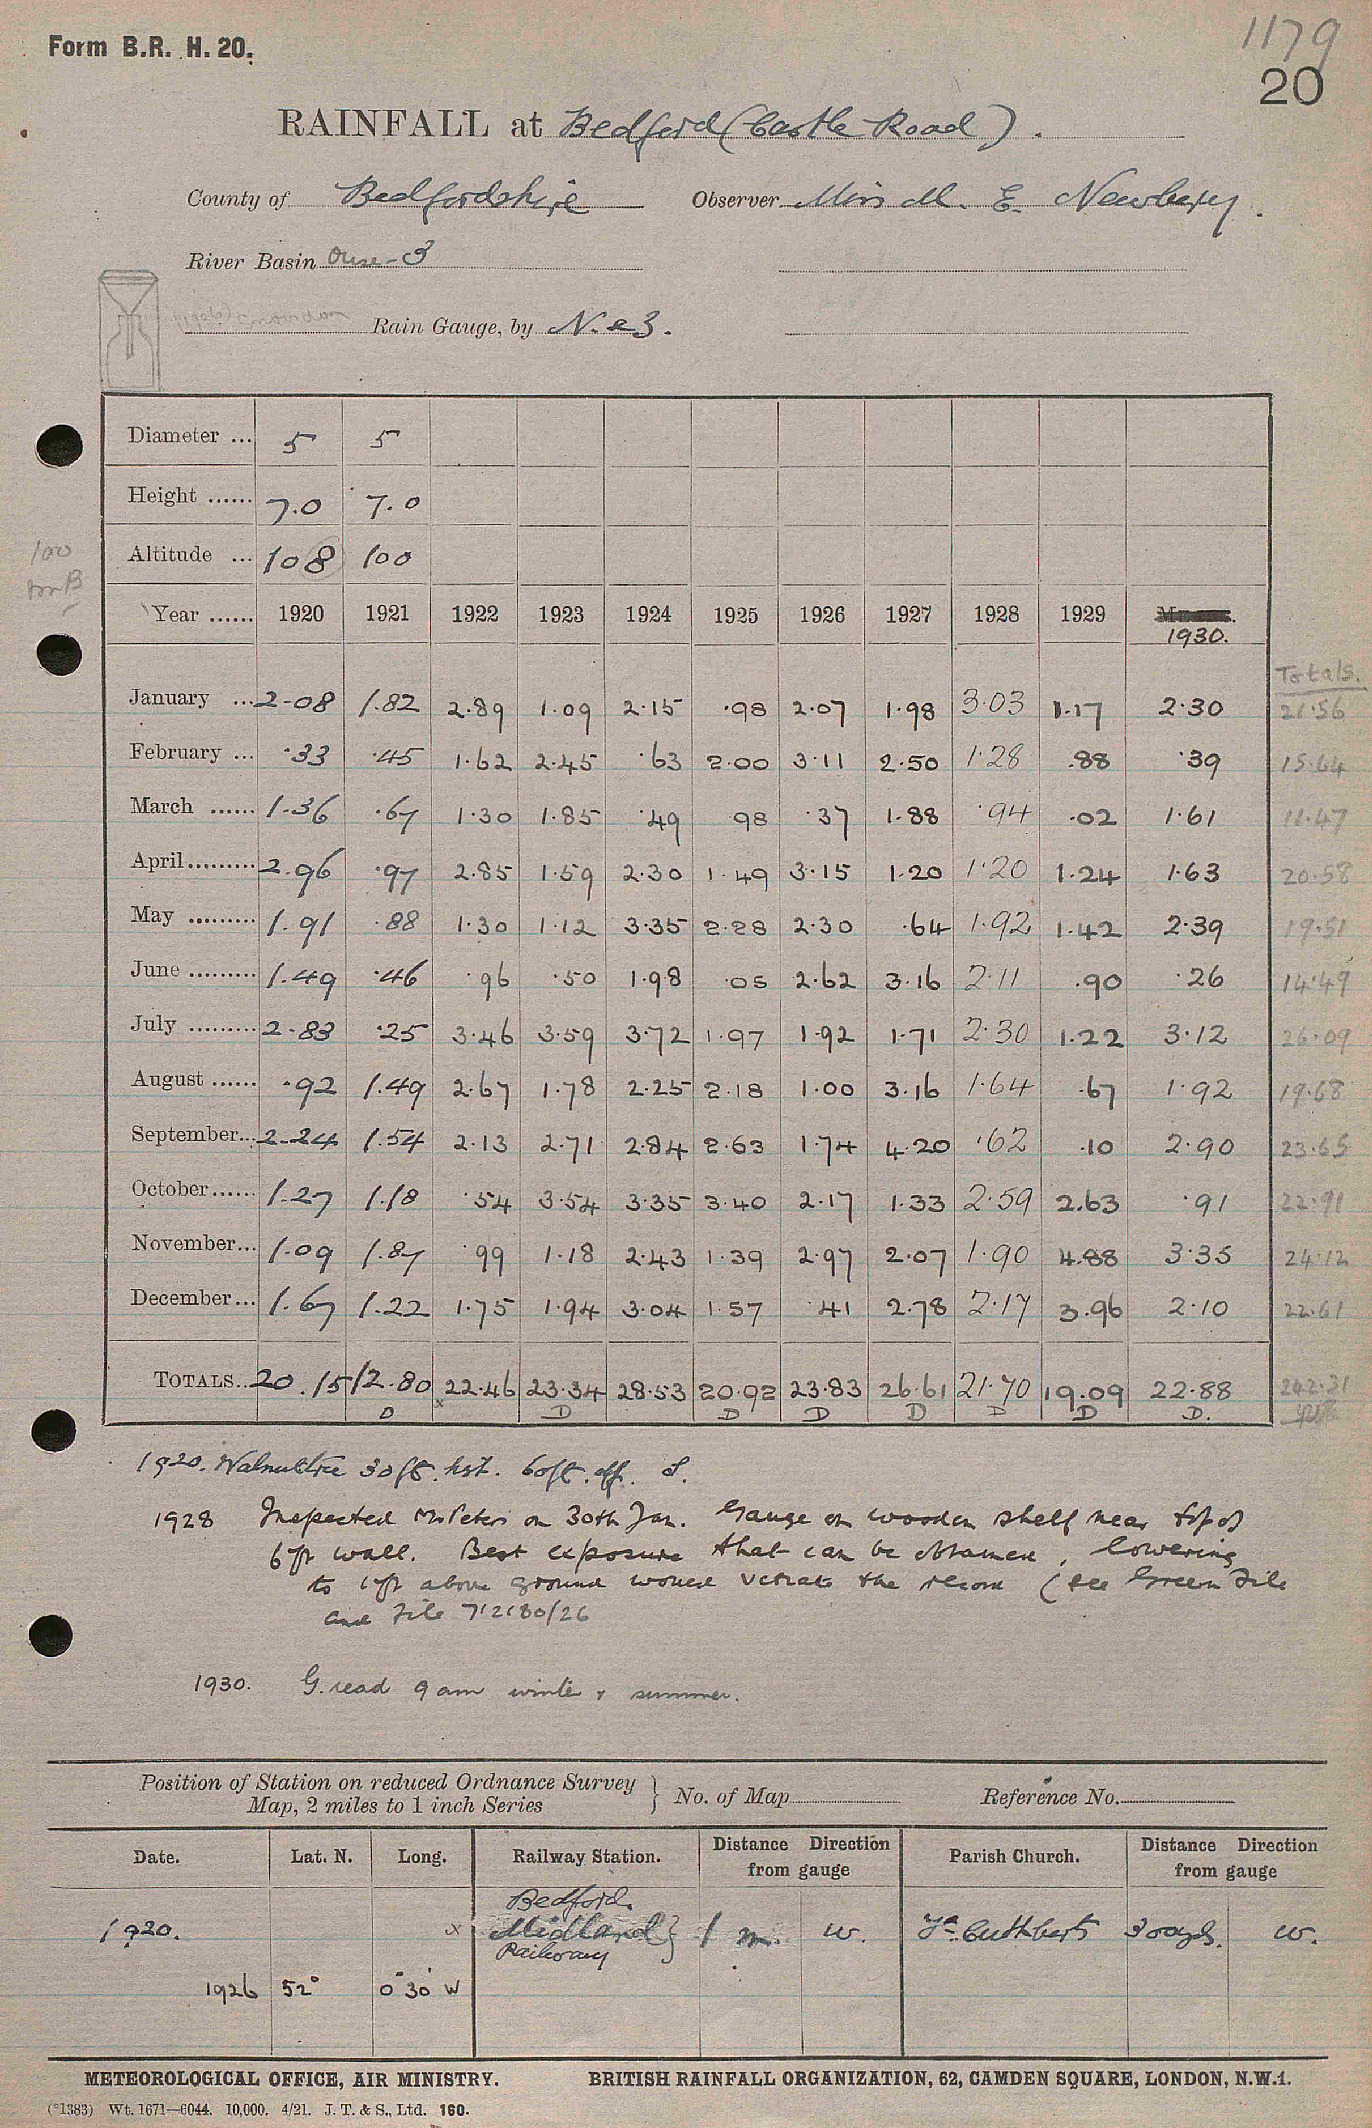 Form B.R. H. 20.
1179
20
RAINFALL at Bedford (Castle Road).
County of Bedfordshire Observer Miss M. E. Newbery.
River Basin Ouse-3
Snowdon Rain Gauge, by N. & Z.
Diameter ... 5 5
Height ...... 7.0 7.0
100
Altitude ... 108 100
Year ...... 1920 1921 1922 1923 1924 1925 1926 1927 1928 1929 1930.
Totals.
January ... 2.08 1.82 2.89 1.09 2.15 .98 2.07 1.98 3.03 1.17 2.30 21.56
February ... .33 .45 1.62 2.45 .63 2.00 3.11 2.50 1.28 .88 .39 15.64
March ...... 1.36 .67 1.30 1.85 .49 98 .37 1.88 .94 .02 1.61 11.47
April ......... 2.96 .97 2.85 1.59 2.30 1.49 3.15 1.20 1.20 1.24 1.63 20.58
May ......... 1.91 .88 1.30 1.12 3.35 2.28 2.30 .64 1.92 1.42 2.39 19.51
June ......... 1.49 .46 .96 .50 1.98 .05 2.62 3.16 2.11 .90 .26 14.49
July ......... 2.83 .25 3.46 3.59 3.72 1.97 1.92 1.71 2.30 1.22 3.12 26.09
August ...... .92 1.49 2.67 1.78 2.25 2.18 1.00 3.16 1.64 .67 1.92 19.68
September... 2.24 1.54 2.13 2.71 2.84 2.63 1.74 4.20 .62 .10 2.90 23.65
October...... 1.27 1.18 .54 3.54 3.35 3.40 2.17 1.33 2.59 2.63 .91 22.91
November... 1.09 1.87 .99 1.18 2.43 1.39 2.97 2.07 1.90 4.88 3.35 24.12
December... 1.67 1.22 1.75 1.94 3.04 1.57 .41 2.78 2.17 3.96 2.10 22.61
TOTALS.. 20.15 12.80 22.46 23.34 28.53 20.92 23.83 26.61 21.70 19.09 22.88 242.31
D x D D D D D D D.
1920. Walnut tree 30ft. hst. 60ft. off. S.
1928 Inspected Mr Peters on 30th Jan. Gauge on wooden shelf near top of
6ft wall. Best exposure that can be obtained, lowering
to 1ft above ground would vitiate the record (see Green File
and File 72180/26
1930. G. read 9 am winter & summer.
Position of Station on reduced Ordnance Survey
Map, 2 miles to 1 inch Series } No. of Map Reference No.
Date. Lat. N. Long. Railway Station. Distance Direction from gauge Parish Church. Distance Direction from gauge
1920. x Bedford. Midland Railway } 1 m. W. St. Cuthberts 300yds. W.
1926 52° 0° 30' W
METEOROLOGICAL OFFICE, AIR MINISTRY. BRITISH RAINFALL ORGANIZATION, 62, CAMDEN SQUARE, LONDON, N.W.1.
(*1383) Wt. 1671—6044. 10,000. 4/21. J. T. & S., Ltd. 160.